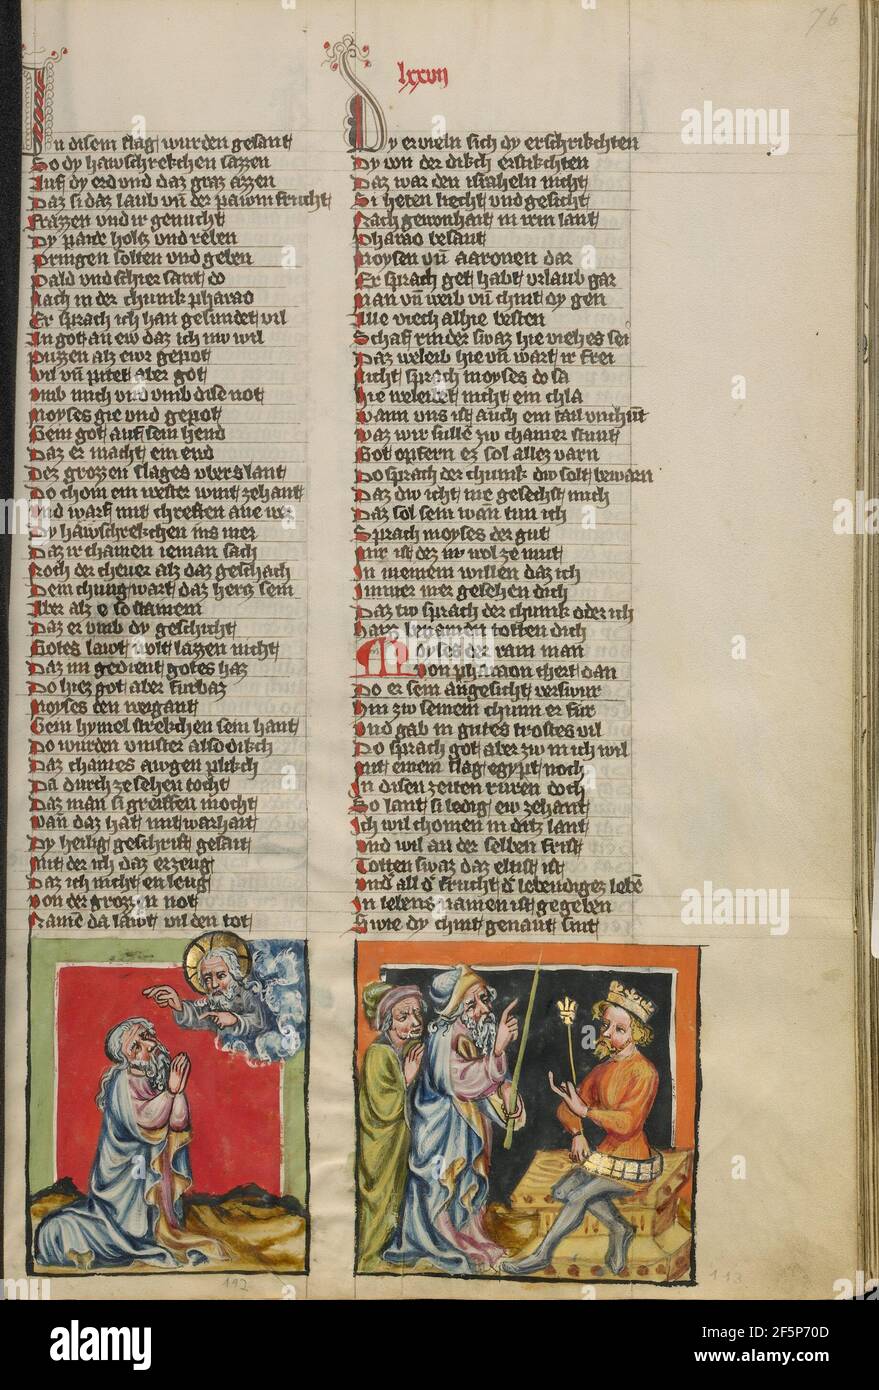 76
lxxvij
In disem slag wurden gesant
So dy hawschrekchen sazzen
Auf dy erd vnd daz gras azzen
Daz si daz laub vn̄ der pawm frucht
Frazzen vnd ir genucht
Dy pawr holtz vnd reben
Bringen solten vnd geben
Pald vnd schier sant do
Nach in der chunik pharao
Er sprach ich han gesundet vil
In got an ew daz ich nw wil
Puzzen alz ewr gepot
Wil vn̄ pitet aber got
Vmb mich vnd vmb dise not
Moyses gie vnd gepot
Gein got auf sein hend
Daz er macht ein end
Dez grozzen slages vbers lant
Do chom ein wester wint zehant
Vnd warf mit chreften aue wer
Dy hawschrekchen ins mer
Daz ir chainen ieman sach
Noch der cheuer alz daz geschach
Dem chung wart daz hertz sein
Aber alz e so stainein
Daz er vmb dy geschicht
Gotes lawt wolt lazzen nicht
Daz im gedient gotes haz
Do hiez got aber furbaz
Moysen den weigant
Gein hymel strekchen sein hant
Do wurden vinster also dikch
Daz chaines awgen plikch
Da durch ze sehen tocht
Daz man si greiffen mocht
Wan̄ daz hat mit warhait
Dy heilig geschrift gesait
Mit der ich daz erzeug
Daz ich nicht en leug
Von der grozzen not
Namē da lawt vil den tot
Dy ervieln sich dy erschrikchten
Dy von der dikch erstikchten
Daz war den israheln nicht
Si heten liecht vnd gesicht
Nach gewonhait in irm lant
Pharao besant
Moysen vn̄ aaronen dar
Er sprach get habt vrlaub gar
Man vn̄ weib vn̄ chint dy gen
Alle viech alhie besten
Schaf rinder swaz hie viehes sei
Daz weleib hie vn̄ wart ir frei
Nicht sprach moyses do sa
Hie weleibet nicht ein chla
Wann vns ist auch ein tail vnchūt
Waz wir sullē zw chainer stunt
Got opfern ez sol allez varn
Do sprach der chunik dw solt bewarn
Daz dw icht me gesechst mich
Daz sol sein wan tun ich
Sprach moyses der gut
Mir ist dez nv wol ze mut
In meinem willen daz ich
Immer mer gesehen dich
Daz tw sprach der chunik oder ich
Harz benamen totten dich
Moyses der rain man
Von pharaon chert dan
Do er sein angesicht verswur
Hin zw seinem chunn er fur
Vnd gab in gutes trostes vil
Do sprach got aber zw in ich wil
Mit einem slag egypt noch
In disen zeiten ruren doch
So lant si ledig ew zehant
Ich wil chomen in ditz lant
Vnd wil an der selben frist
Totten swaz daz eltist ist
Vnd all d' frucht d' lebendigez lebē
In lebens namen ist gegeben
Swie dy chint genant sint
192
193
alamy
Image ID: 2F5P70D
www.alamy.com